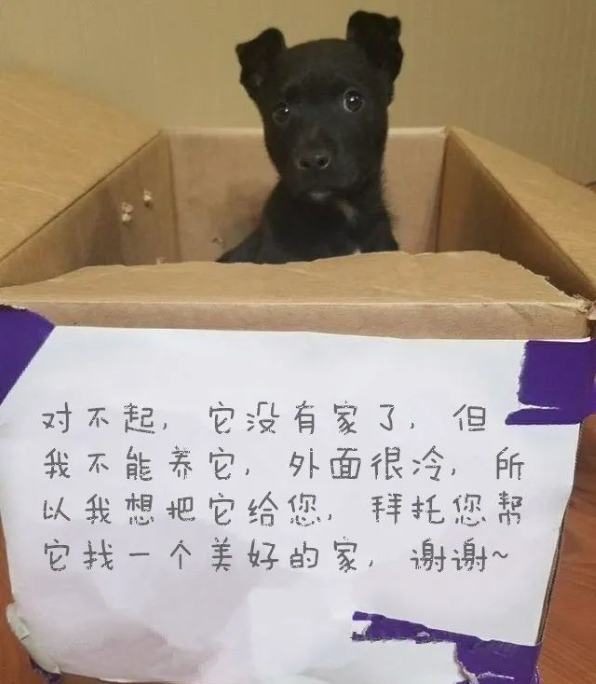 对不起，它没有家了，但
我不能养它，外面很冷，所
以我想把它给您，拜托您帮
它找一个美好的家，谢谢~